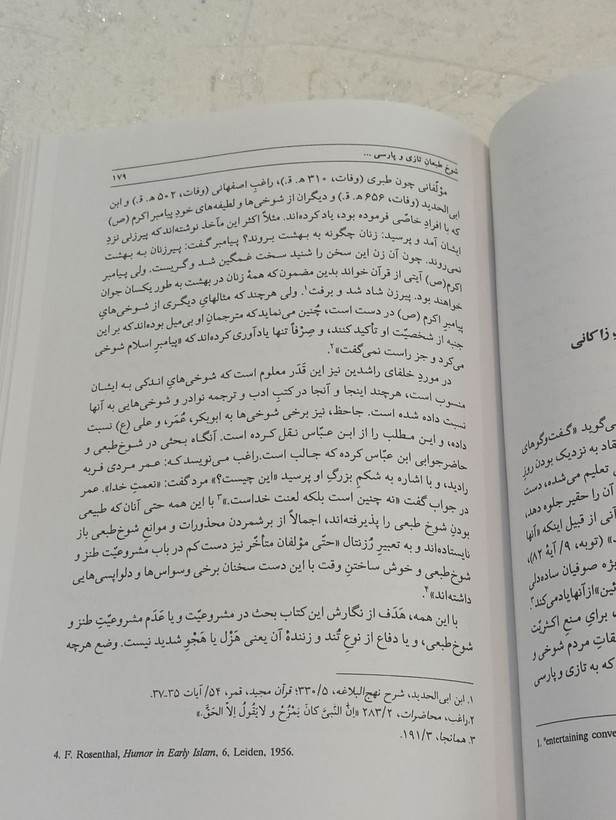 شوخ طبعانِ تازی و پارسی ...
۱۷۹
مؤلّفانی چون طبری (وفات، ۳۱۰ ه‍. ق.)، راغبِ اصفهانی (وفات، ۵۰۲ ه‍. ق.) و ابن
ابی‌الحدید (وفات، ۶۵۶ ه‍. ق.) و دیگران از شوخی‌ها و لطیفه‌های خودِ پیامبر اکرم (ص)
که با افرادِ خاصّی فرموده بود، یاد کرده‌اند. مثلاً اکثر این مآخذ نوشته‌اند که پیرزنی نزدِ
ایشان آمد و پرسید: زنان چگونه به بهشت بروند؟ پیامبر گفت: پیرزنان به بهشت
نمی‌روند. چون آن زن این سخن را شنید سخت غمگین شد و گریست. ولی پیامبر
اکرم(ص) آیتی از قرآن خواند بدین مضمون که همهٔ زنان در بهشت به طور یکسان جوان
خواهند بود. پیرزن شاد شد و برفت۱. ولی هرچند که مثالهایِ دیگری از شوخی‌هایِ
پیامبر اکرم (ص) در دست است، چُنین می‌نماید که مترجمانِ او بی‌میل بوده‌اند که بر این
جنبه از شخصیّت او تأکید کنند، و صِرْفاً تنها یادآوری کرده‌اند که «پیامبرِ اسلام شوخی
می‌کرد و جز راست نمی‌گفت»۲.
در موردِ خلفای راشدین نیز این قَدَر معلوم است که شوخی‌هایِ اندکی به ایشان
منسوب است، هرچند اینجا و آنجا در کتبِ ادب و ترجمه نوادر و شوخی‌هایی به آنها
نسبت داده شده است. جاحظ، نیز برخی شوخی‌ها به ابوبکر، عُمَر، و علی (ع) نسبت
داده، و ایـن مـطلب را از ابـن عـبّاس نـقل کـرده است. آنگاه بـحثی در شوخ‌طبعی و
حاضرجوابی ابن عبّاس کرده که جـالب است.راغب مـی‌نویسد کـه: عـمر مـردی فربه
رادید، و با اشاره به شکمِ بزرگِ او پرسید «این چیست؟» مرد گفت: «نعمتِ خدا». عمر
در جواب گفت «نه چنین است بلکه لعنت خداست.»۳ با این همه حتی آنان که طبیعی
بودنِ شوخ طبعی را پذیرفته‌اند، اجمالاً از برشمردن محذورات و موانعِ شوخ‌طبعی باز
نایستاده‌اند و به تعبیر رُزنتال «حتّی مؤلفان متأخّر نیز دست کم در باب مشروعیّت طنز و
شوخ‌طبعی و خوش ساختنِ وقت با این دست سخنان برخی وسواس‌ها و دلواپسی‌هایی
داشته‌اند»۴.
با این همه، هَدَف از نگارش این کتاب بحث در مشروعیّت و یا عَدَم مشروعیّتِ طنز و
شوخ‌طبعی، و یا دفاع از نوع تُند و زنندهٔ آن یعنی هَزْل یا هَجْوِ شدید نیست. وضع هرچه
۱. ابن ابی‌الحدید، شرح نهج‌البلاغه، ۳۳۰/۵؛ قرآن مجید، قمر، ۵۴/ آیات ۳۵-۳۷.
۲.راغب، محاضرات، ۲۸۳/۲ «اِنَّ النَّبیَّ کانَ یَمْزُحُ و لایَقُولُ اِلاّ الحَقَّ.»
۳. همانجا، ۱۹۱/۳.
4. F. Rosenthal, Humor in Early Islam, 6, Leiden, 1956.
؛ زاکانی
می‌گوید «گفت‌وگوهای
قاد به نزدیک بودن روزِ
تعلیم می‌شده، دست
آن را حقیر جلوه دهد،
آنی از قبیل اینکه «آنها
» (توبه، ۹/ آیهٔ ۸۲)،
یژه صوفیان ساده‌دلی
ئین» از آنها یاد می‌کند؟
، برایِ منعِ اکثریّت
قاتِ مردم شوخی و
که به تازی و پارسی
1. "entertaining conve